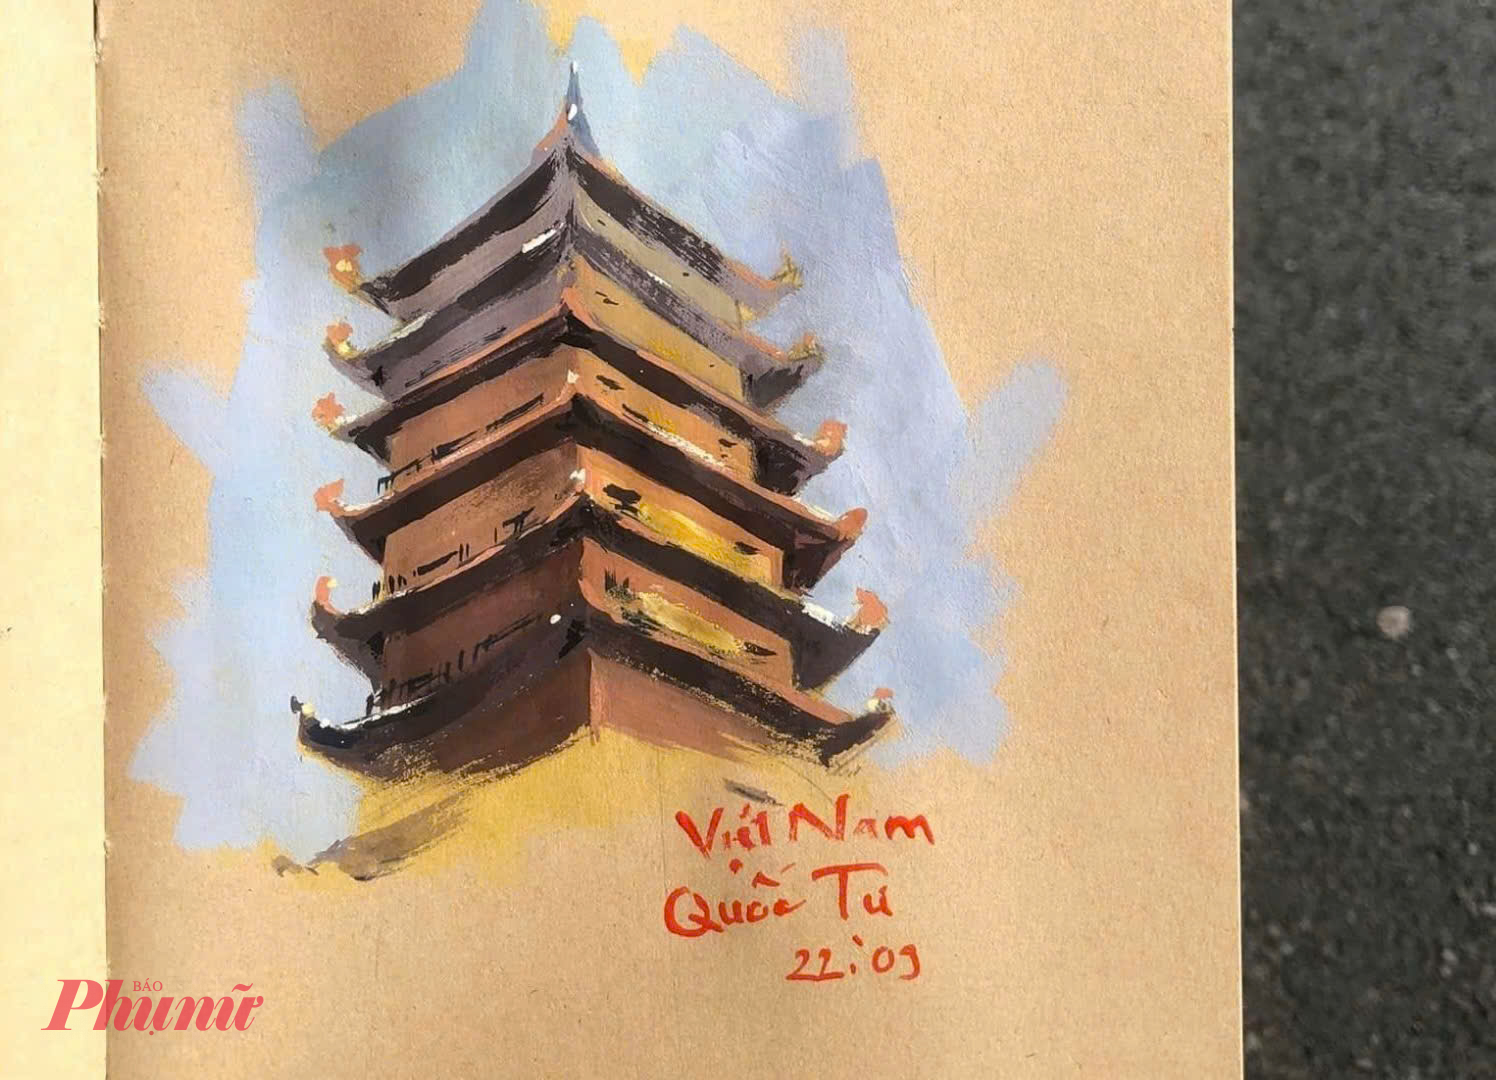 Việt Nam
Quốc Tự
22.'09
BÁO
Phụ nữ